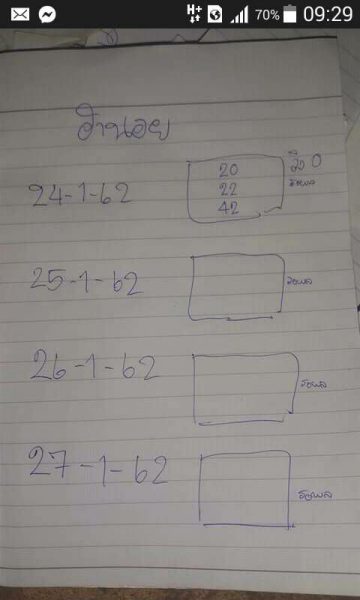 H+ 70% 09:29
ฮานอย
24-1-62
20
22
42
0
รอผล
25-1-62
รอผล
26-1-62
รอผล
27-1-62
รอผล